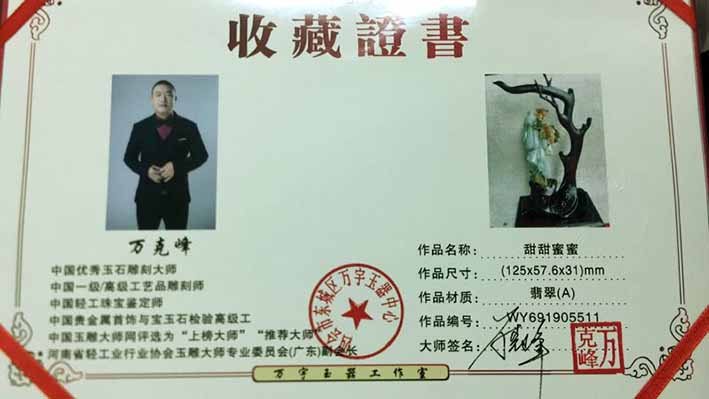 收藏證書
万克峰
中国优秀玉石雕刻大师
中国一级/高级工艺品雕刻师
中国轻工珠宝鉴定师
中国贵金属首饰与宝玉石检验高级工
中国玉雕大师网评选为“上榜大师”“推荐大师”
河南省轻工业行业协会玉雕大师专业委员会(广东)副会长
四会市东城区万宇玉器中心
作品名称: 甜甜蜜蜜
作品尺寸: (125x57.6x31)mm
作品材质: 翡翠(A)
作品编号: WY691905511
大师签名:
万克峰
万宇玉器工作室